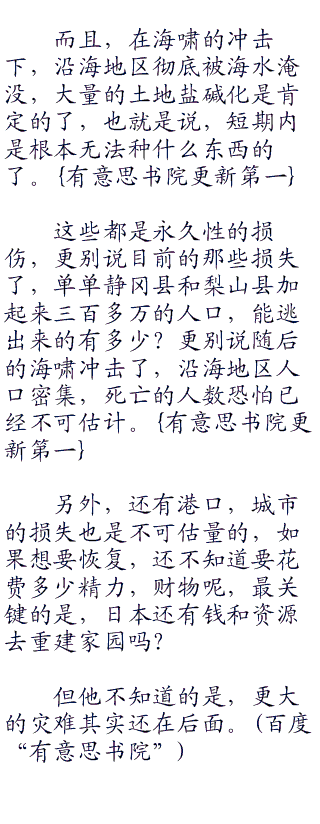 而且，在海啸的冲击
下，沿海地区彻底被海水淹
没，大量的土地盐碱化是肯
定的了，也就是说，短期内
是根本无法种什么东西的
了。{有意思书院更新第一}
这些都是永久性的损
伤，更别说目前的那些损失
了，单单静冈县和梨山县加
起来三百多万的人口，能逃
出来的有多少？更别说随后
的海啸冲击了，沿海地区人
口密集，死亡的人数恐怕已
经不可估计。{有意思书院更
新第一}
另外，还有港口，城市
的损失也是不可估量的，如
果想要恢复，还不知道要花
费多少精力，财物呢，最关
键的是，日本还有钱和资源
去重建家园吗？
但他不知道的是，更大
的灾难其实还在后面。(百度
“有意思书院”)